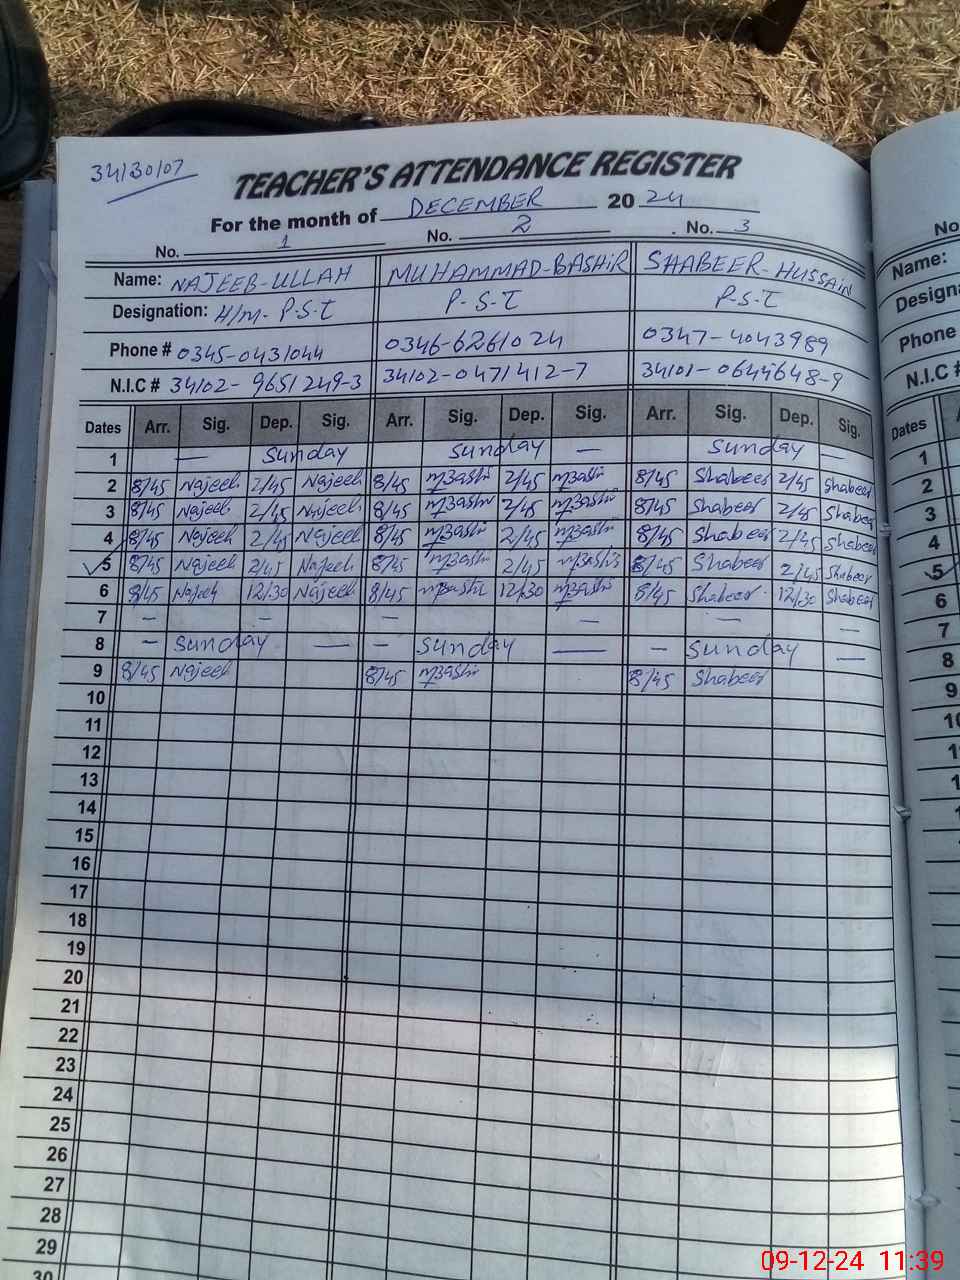 34130107
TEACHER'S ATTENDANCE REGISTER
For the month of DECEMBER 20 24
No. 1 No. 2 No. 3
Name: NAJEEB-ULLAH MUHAMMAD-BASHIR SHABEER-HUSSAIN
Designation: H/M- P-S-T P-S-T P-S-T
Phone # 0345-0431044 0346-6261024 0347-4043989
N.I.C # 34102-9651249-3 34102-0471412-7 34101-0644648-9
Dates Arr. Sig. Dep. Sig. Arr. Sig. Dep. Sig. Arr. Sig. Dep. Sig.
1 — Sunday Sunday — Sunday —
2 8/45 Najeeb 2/45 Najeeb 8/45 MBashir 2/45 MBashir 8/45 Shabeer 2/45 Shabeer
3 8/45 Najeeb 2/45 Najeeb 8/45 MBashir 2/45 MBashir 8/45 Shabeer 2/45 Shabeer
4 8/45 Najeeb 2/45 Najeeb 8/45 MBashir 2/45 MBashir 8/45 Shabeer 2/45 Shabeer
5 8/45 Najeeb 2/45 Najeeb 8/45 MBashir 2/45 MBashir 8/45 Shabeer 2/45 Shabeer
6 8/45 Najeeb 12/30 Najeeb 8/45 MBashir 12/30 MBashir 8/45 Shabeer 12/30 Shabeer
7 — — — — — —
8 — Sunday — — Sunday — — Sunday —
9 8/45 Najeeb 8/45 MBashir 8/45 Shabeer
10
11
12
13
14
15
16
17
18
19
20
21
22
23
24
25
26
27
28
29
30
No.
Name:
Designa
Phone
N.I.C #
Dates
1
2
3
4
5
6
7
8
9
10
11
09-12-24 11:39